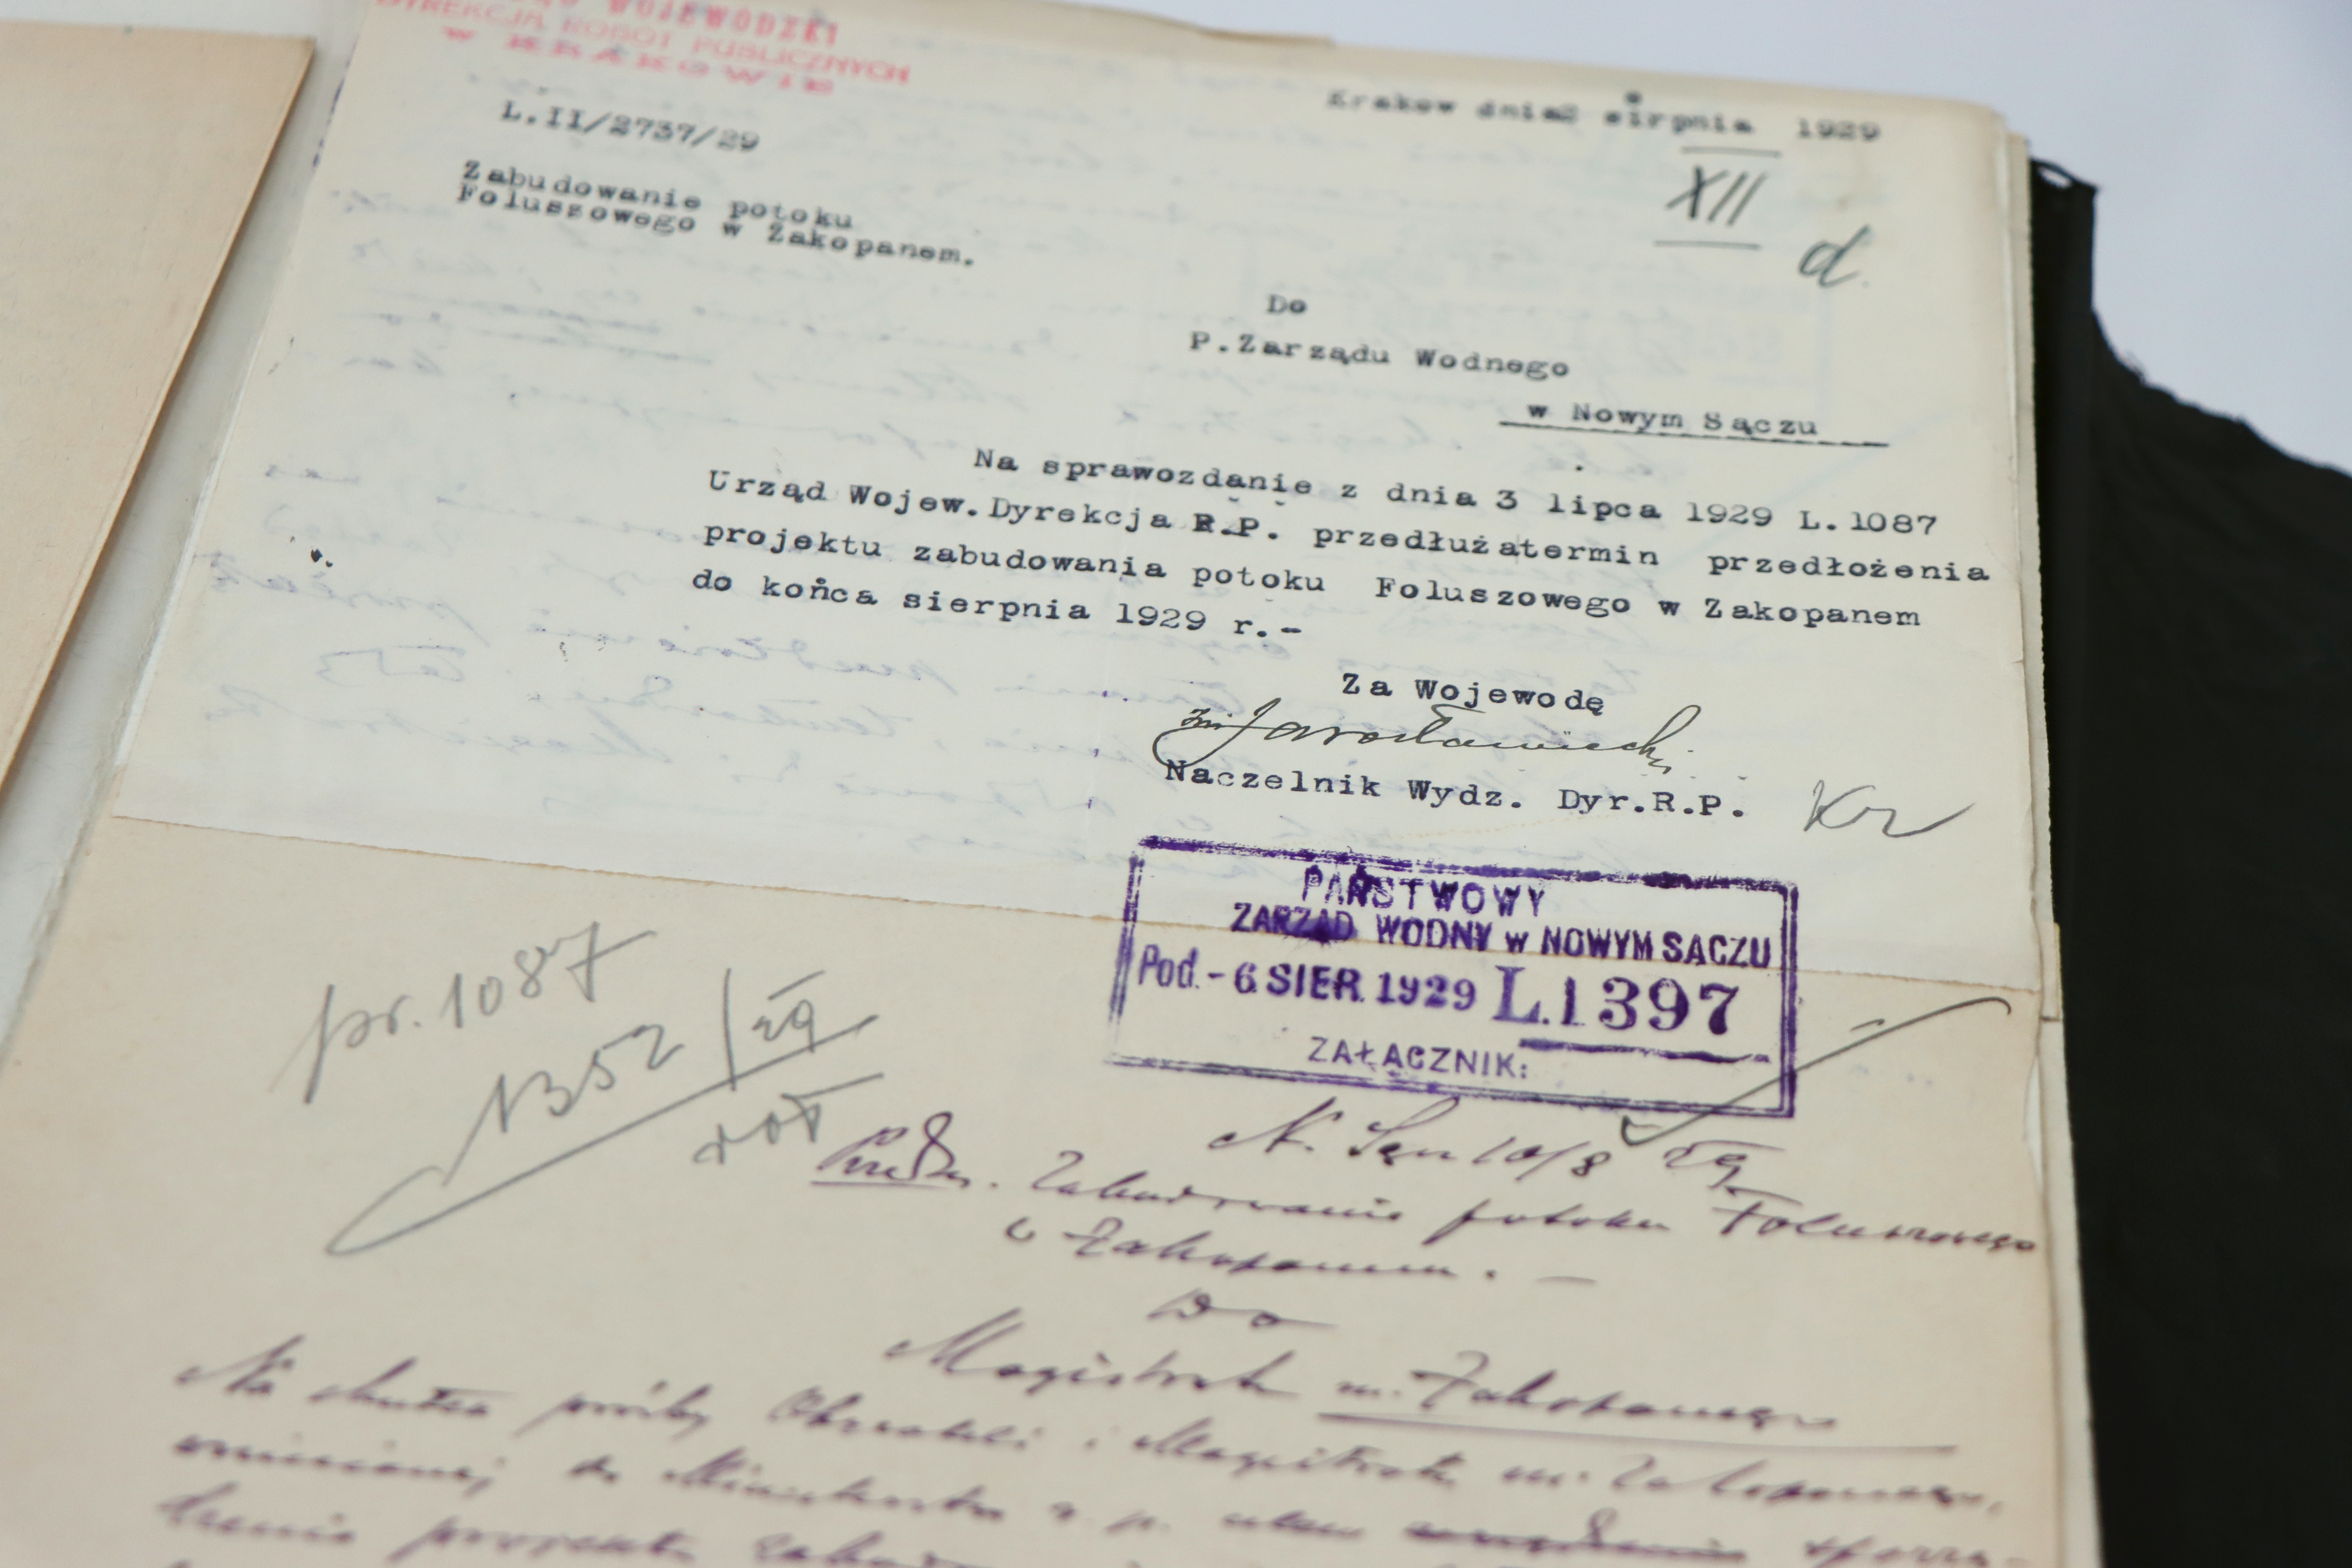 WOJEWÓDZKI
DYREKCJA ROBÓT PUBLICZNYCH
W KRAKOWIE
L.II/2737/29
Kraków dnia2 sirpnia 1929
XII
d.
Zabudowanie potoku
Foluszowego w Zakopanem.
Do
P.Zarządu Wodnego
w Nowym Sączu
Na sprawozdanie z dnia 3 lipca 1929 L.1087
Urząd Wojew.Dyrekcja R.P. przedłużatermin przedłożenia
projektu zabudowania potoku Foluszowego w Zakopanem
do końca sierpnia 1929 r.-
Za Wojewodę
Jarosławiecki
Naczelnik Wydz. Dyr.R.P.
Kr
PAŃSTWOWY
ZARZĄD WODNY w NOWYM SĄCZU
Pod.- 6 SIER. 1929 L.1397
ZAŁĄCZNIK:
pr. 1087
1352/29
N. Sącz 10/8 29
Zabudowanie potoku Foluszowego
w Zakopanem. -
Do
Magistratu m. Zakopanego
Na skutek prośby i Magistratu m. Zakopanego,
wniesionej do Ministerstwa r. p.
projektu